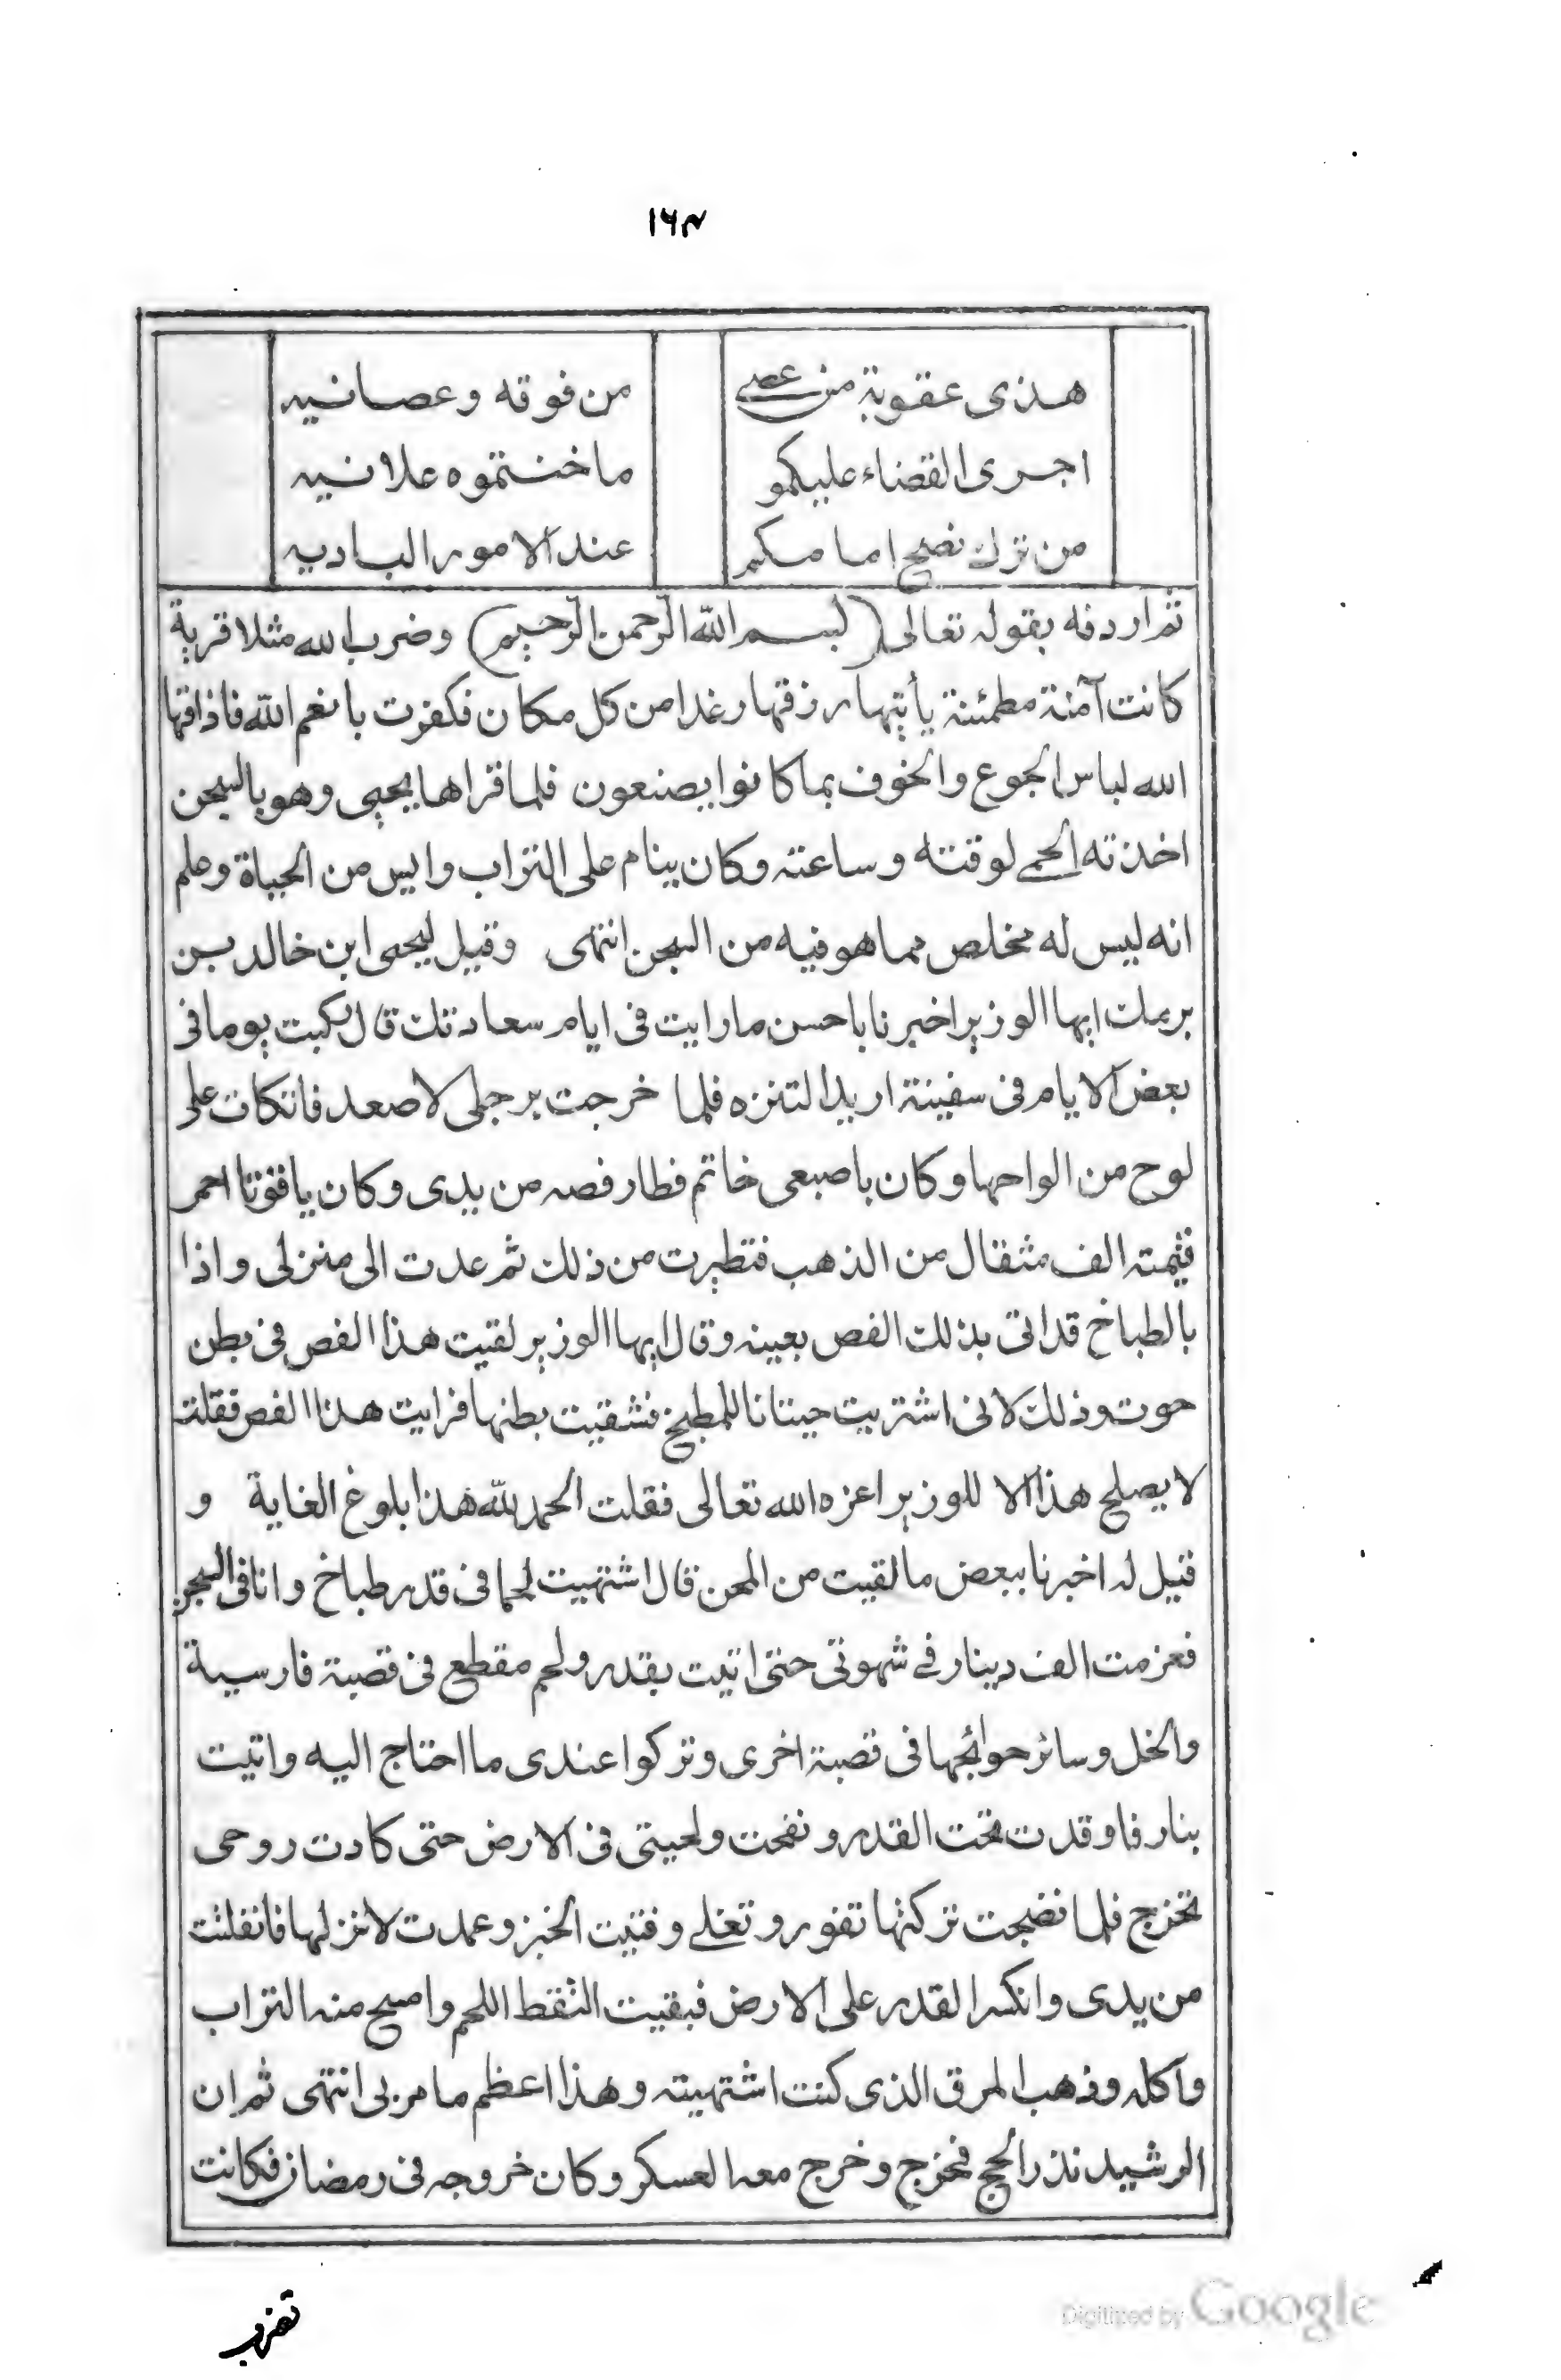 ١٦٣
هذى عقوبة من عصى من فوقه وعصانيه
اجرى القضاء عليكمو ما خنتموه علانيه
من ترك نصح امامكم عند الامور الباديه
ثم اردفه بقوله تعالى (بسم الله الرحمن الرحيم) وضرب الله مثلا قرية
كانت آمنة مطمئنة يأتيها رزقها رغدا من كل مكان فكفرت بانعم الله فاذاقها
الله لباس الجوع والخوف بما كانوا يصنعون فلما قراها يحيى وهو بالسجن
اخذته الحمى لوقته وساعته وكان ينام على التراب وايس من الحياة وعلم
انه ليس له مخلص مما هو فيه من السجن انتهى وقيل ليحيى ابن خالد بن
برمك ايها الوزير اخبرنا باحسن ما رايت فى ايام سعادتك قال ركبت يوما فى
بعض الايام فى سفينة اريد التنزه فلما خرجت برجلى لاصعد فاتكات على
لوح من الواحها وكان باصبعى خاتم فطار فصه من يدى وكان ياقوتا احمر
قيمته الف مثقال من الذهب فتطيرت من ذلك ثم عدت الى منزلى واذا
بالطباخ قد اتى بذلك الفص بعينه وقال ايها الوزير لقيت هذا الفص فى بطن
حوت وذلك لانى اشتريت حيتانا للمطبخ فشقيت بطنها فرايت هذا الفص فقلت
لا يصلح هذا الا للوزير اعزه الله تعالى فقلت الحمد لله هذا بلوغ الغاية و
قيل له اخبرنا ببعض ما لقيت من المحن قال اشتهيت لحما فى قدر طباخ وانا فى السجن
فعزمت الف دينار فى شهوتى حتى اتيت بقدر ولحم مقطع فى قصبة فارسية
والخل وسائر حوائجها فى قصبة اخرى وتركوا عندى ما احتاج اليه واتيت
بنار فاوقدت تحت القدر ونفخت ولحيتى فى الارض حتى كادت روحى
تخرج فلما نضجت تركتها تفور وتغلى وفتيت الخبز وعمدت لانزلها فانفلتت
من يدى وانكسر القدر على الارض فبقيت التقط اللحم وامسح منه التراب
وآكله وذهب المرق الذى كنت اشتهيته وهذا اعظم ما مر بى انتهى ثم ان
الرشيد نذر الحج فخرج وخرج معه العسكر وكان خروجه فى رمضان فكانت
تضرب
Digitized by Google